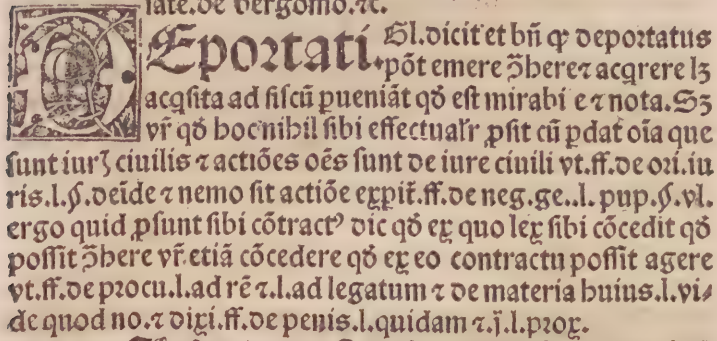 late.de bergomo.⁊c.
DEportati. Gl.dicit et bñ ꝙ deportatus
põt emere ꝯ̃here ⁊ acq̃rere lꝫ
acq̃sita ad fiscũ ꝑueniãt qð est mirabi e ⁊ nota. Sꝫ
vr̃ qð hoc nihil sibi effectualr̃ ꝓsit cũ ꝑdat oĩa que
sunt iurꝫ ciuilis ⁊ actiões oẽs sunt de iure ciuili vt.ff.de ori.iu
ris.l.§.deĩde ⁊ nemo sit actiõe exꝑit̃.ff.de neg.ge..l.pup.§.vl.
ergo quid ꝓsunt sibi cõtractꝰ dic qð ex quo lex sibi cõcedit qð
possit ꝯ̃here vr̃.etiã cõcedere qð ex eo contractu possit agere
vt.ff.de procu.l.ad rẽ ⁊.l.ad legatum ⁊ de materia huius.l.vi⸗
de quod no.⁊ dixi.ff.de penis.l.quidam ⁊.j̃.l.prox.